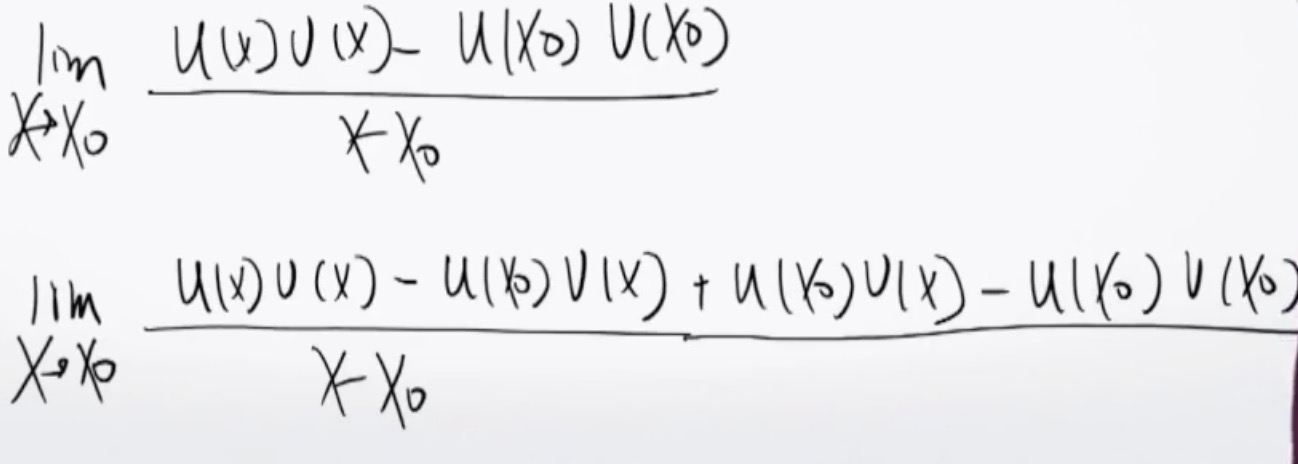 lim x→x₀ (U(x)V(x) - U(x₀)V(x₀)) / (x-x₀)
lim x→x₀ (U(x)V(x) - U(x₀)V(x) + U(x₀)V(x) - U(x₀)V(x₀)) / (x-x₀)